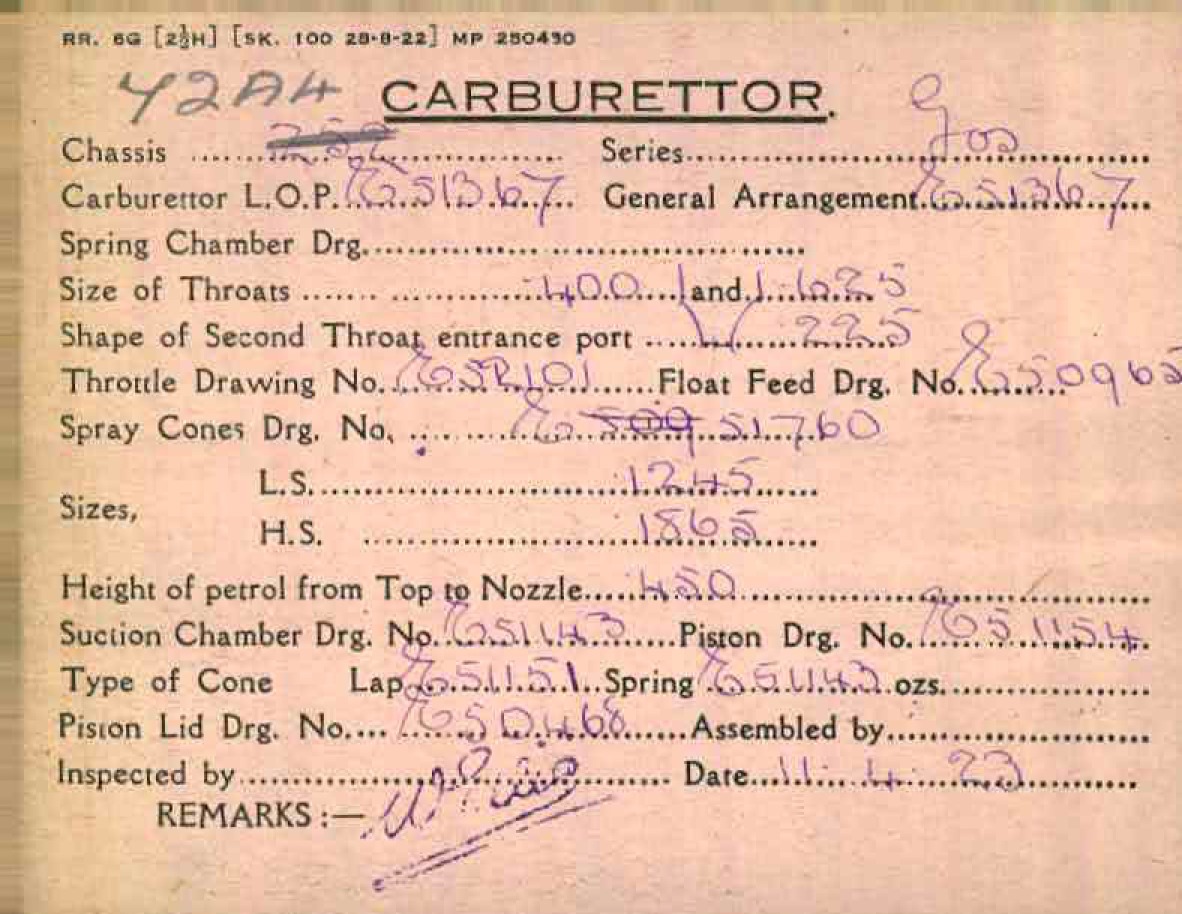 RR. 6G [2½H] [SK. 100 28-8-22] MP 250430
42A4 CARBURETTOR.
Chassis Series
Carburettor L.O.P. E51367 General Arrangement E51367
Spring Chamber Drg.
Size of Throats 400 and 1.625
Shape of Second Throat entrance port V 225
Throttle Drawing No. E52101 Float Feed Drg. No. E50965
Spray Cones Drg. No. E 509 51760
L.S. 1245
Sizes,
H.S. 1865
Height of petrol from Top to Nozzle 450
Suction Chamber Drg. No. E51143 Piston Drg. No. E51154
Type of Cone Lap E51151 Spring E51143 ozs.
Piston Lid Drg. No. E50468 Assembled by
Inspected by Date 11. 4. 23
REMARKS :—